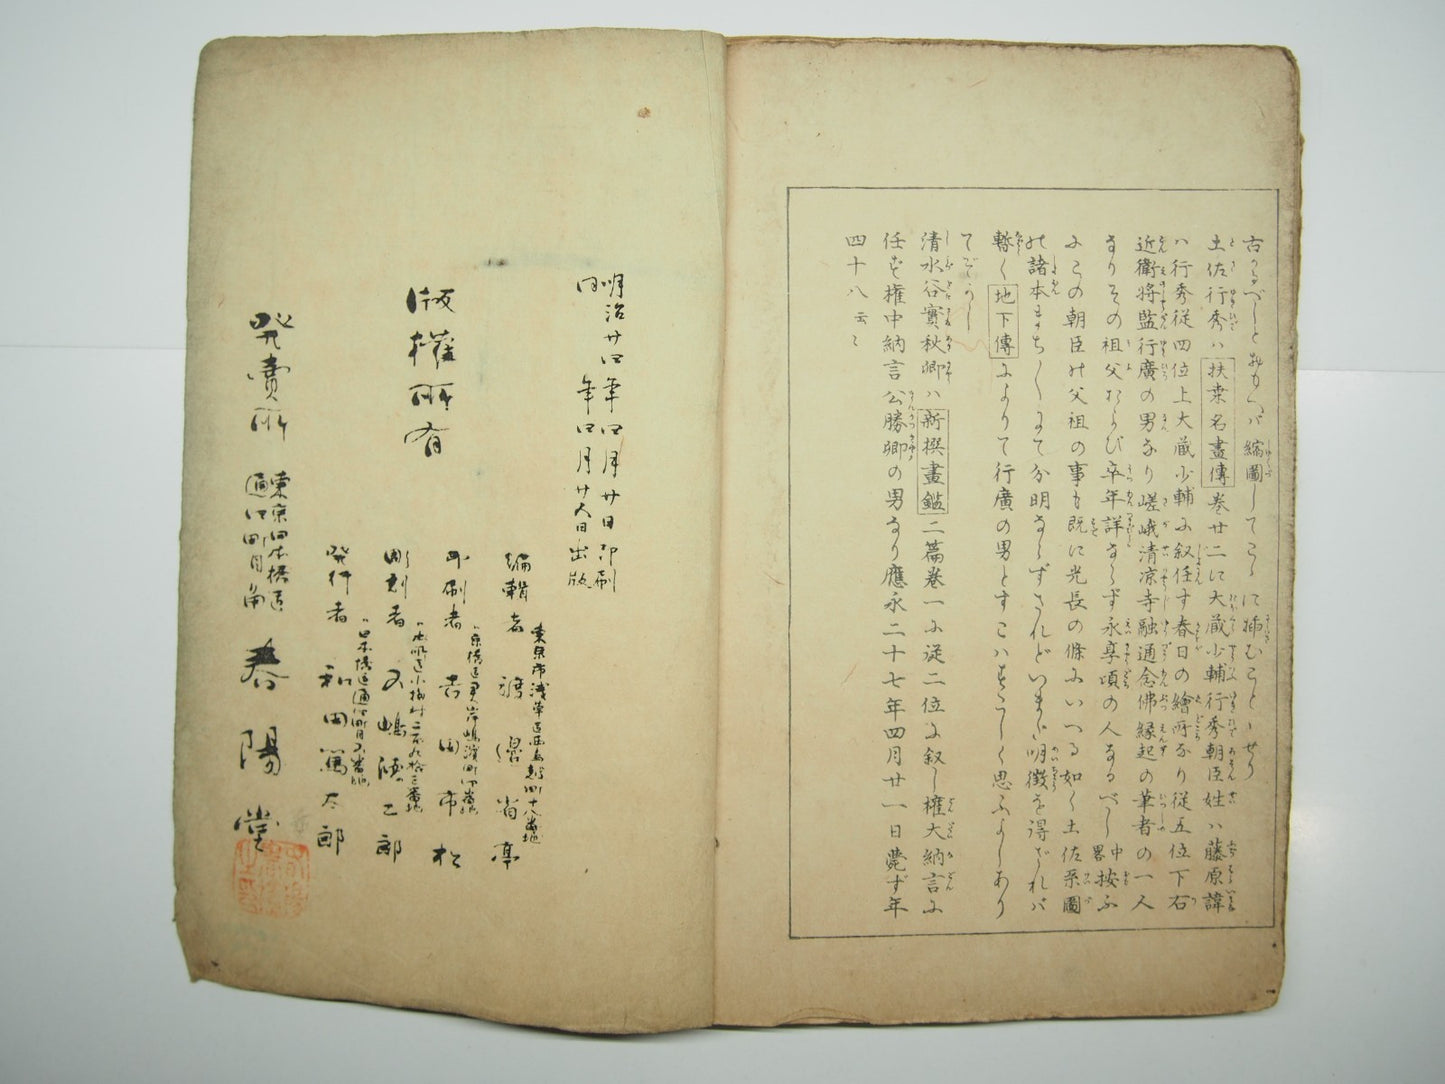 古るべしとおもへバ縮圖してこゝに挿むことゝせり
土佐行秀ハ扶桒名畫傳巻廿二に大蔵少輔行秀朝臣姓ハ藤原諱
ハ行秀従四位上大蔵少輔に叙任す春日の繪所なり従五位下右
近衛將監行廣の男なり嵯峨清凉寺融通念佛縁起の筆者の一人
なりその祖父ならび卒年詳ならず永享頃の人なるべし中畧按ふ
にこの朝臣の父祖の事も既に光長の條にいへる如く土佐系圖
の諸本まち〱にて分明ならずされどいまだ明徴を得ざれバ
暫く地下傳によりて行廣の男とすこハ思ふよしあり
てぞかし
清水谷實秋卿ハ新撰畫鑑二篇巻一に従二位に叙し權大納言に
任ず權中納言公勝卿の男なり應永二十七年四月廿一日薨ず年
四十八云〻
明治廿四年四月廿日印刷
同年四月廿八日出版
版權所有
東京市浅草區
編輯者 渡邊省亭
印刷者 吉田市松
彫刻者 五島徳二郎
日本橋區通四丁目五番地
発行者 和田篤太郎
発賣所
東京日本橋區
通四丁目角
春陽堂